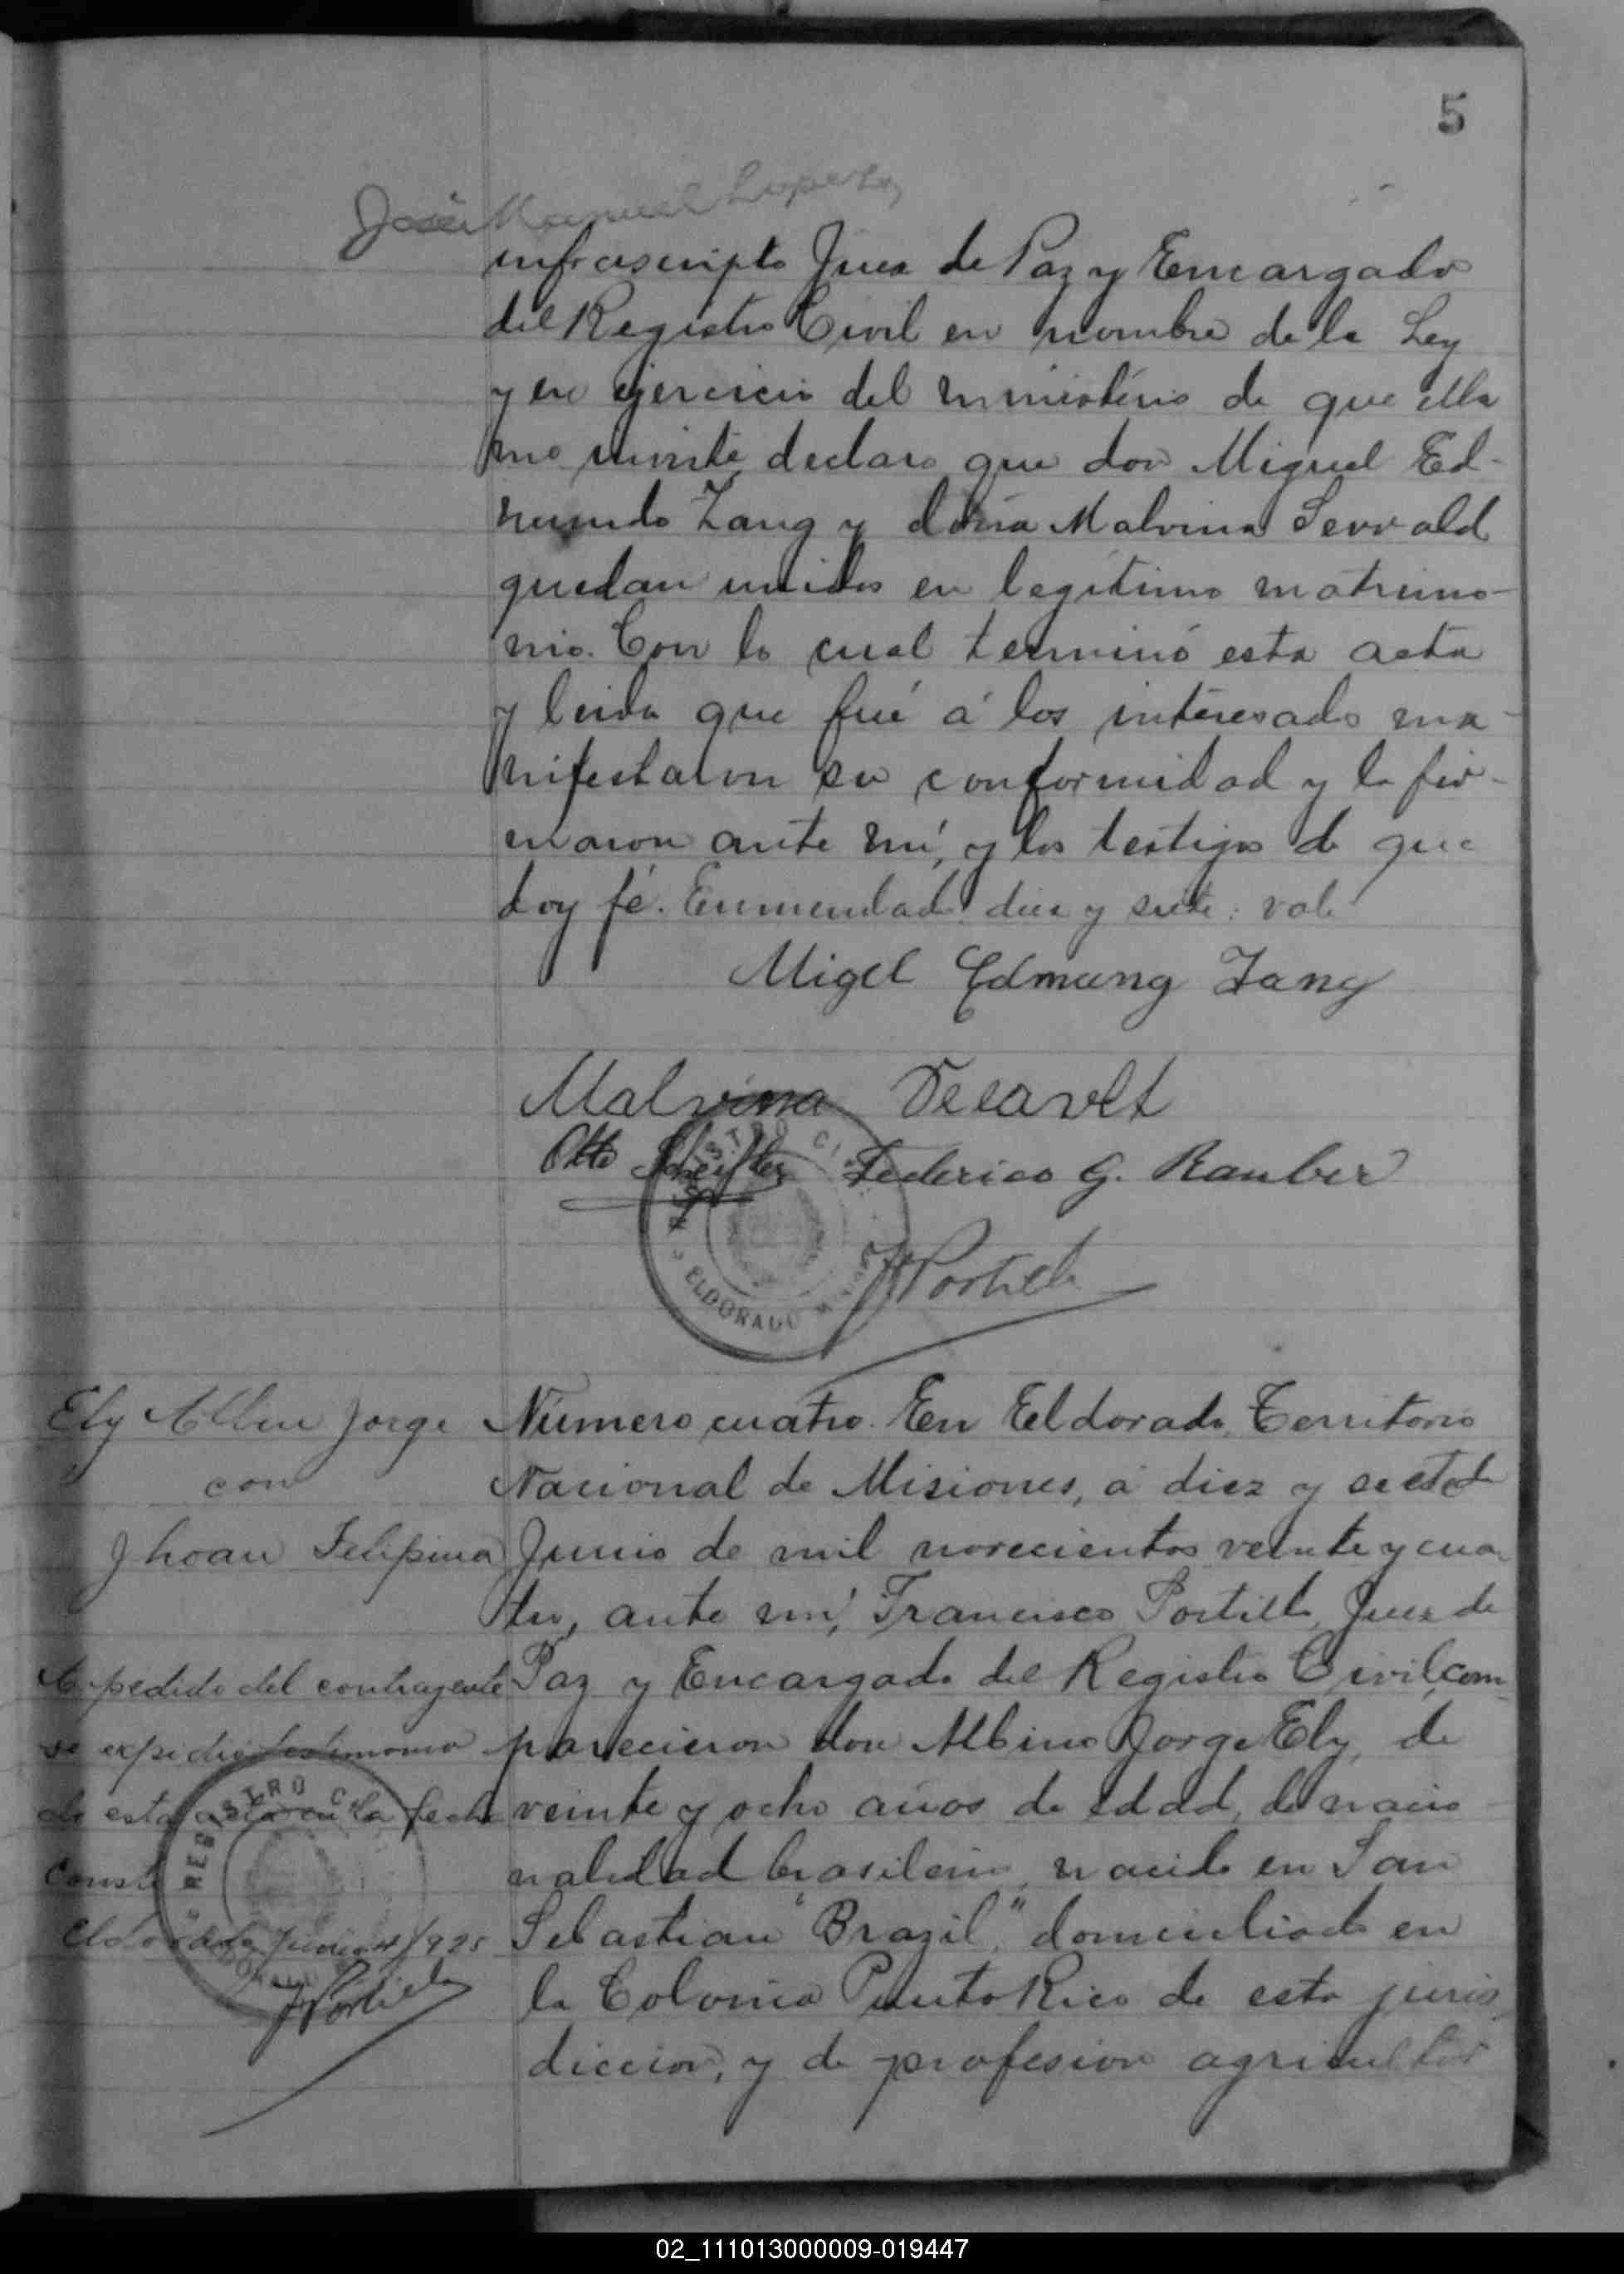 5
José Manuel Lopez
infrascripto Juez de Paz y Encargado
del Registro Civil en nombre de la Ley
y en ejercicio del ministerio de que ella
me inviste declaro que don Miguel Ed-
mundo Zang y doña Malvina Sewald
quedan unidos en legitimo matrimo-
nio. Con lo cual terminó esta acta
y leida que fué á los interesado ma-
nifestaron su conformidad y la fir-
maron ante mí, y los testigos de que
doy fé. Enmendado: diez y siete: vale
Migel Edmung Zang
Malvina
Otto Federico G. Rauber
REGISTRO CIVIL
ELDORADO
FPortillo
Ely Albino Jorge
con
Jhoan Felipina
Número cuatro. En Eldorado, Territorio
Nacional de Misiones, á diez y siete de
Junio de mil novecientos veinte y cua-
tro, ante mí, Francisco Portillo, Juez de
Paz y Encargado del Registro Civil, com-
parecieron don Albino Jorge Ely, de
veinte y ocho años de edad, de nacio-
nalidad brasilera, nacido en San
Sebastian "Brazil," domiciliado en
la Colonia Puerto Rico de esta juris-
diccion, y de profesion agricultor
A pedido del contrayente
se expidio testimonio
de esta acta en la fecha
Conste
Eldorado Junio 925
FPortillo
REGISTRO CIVIL
02_111013000009-019447